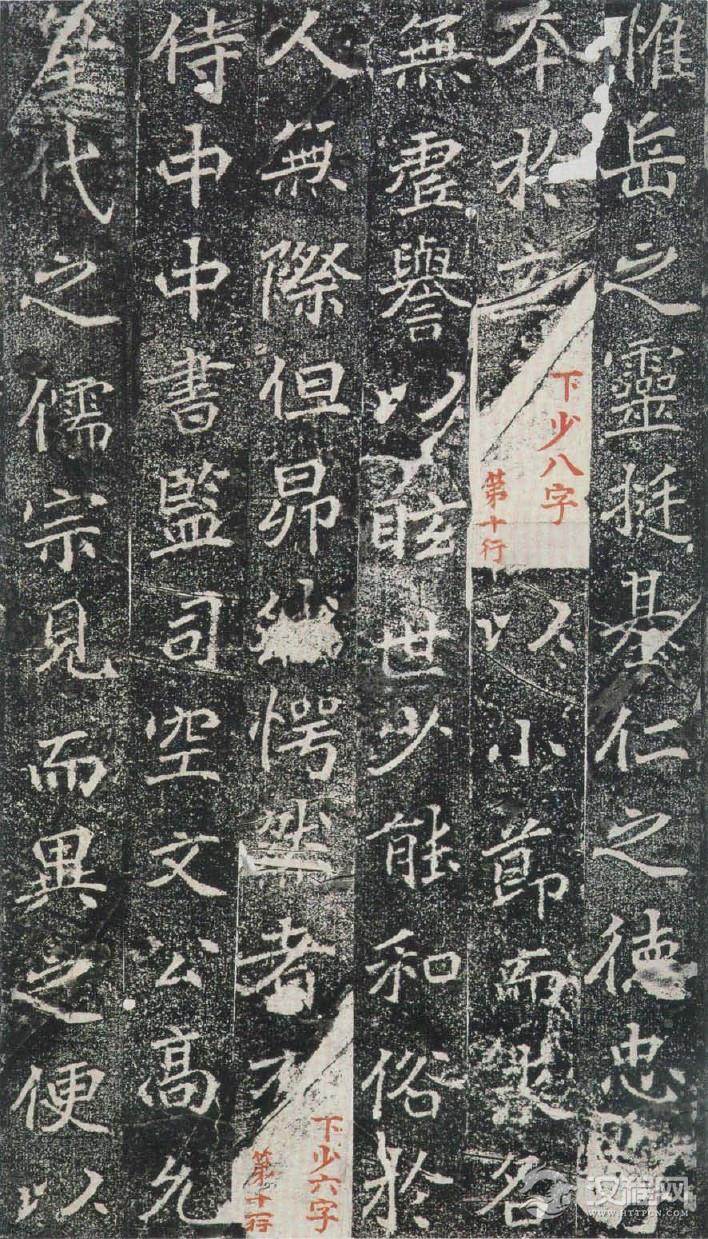 惟岳之靈挺基仁之德忠
夲於立
下少八字
第十行
以小節而求名
無虛譽以眩世少能和俗於
人無際但昂愕然者
下少六字
第十一行
侍中中書監司空文公高允
皇代之儒宗見而異之便以
汉程网
WWW.HTTPCN.COM